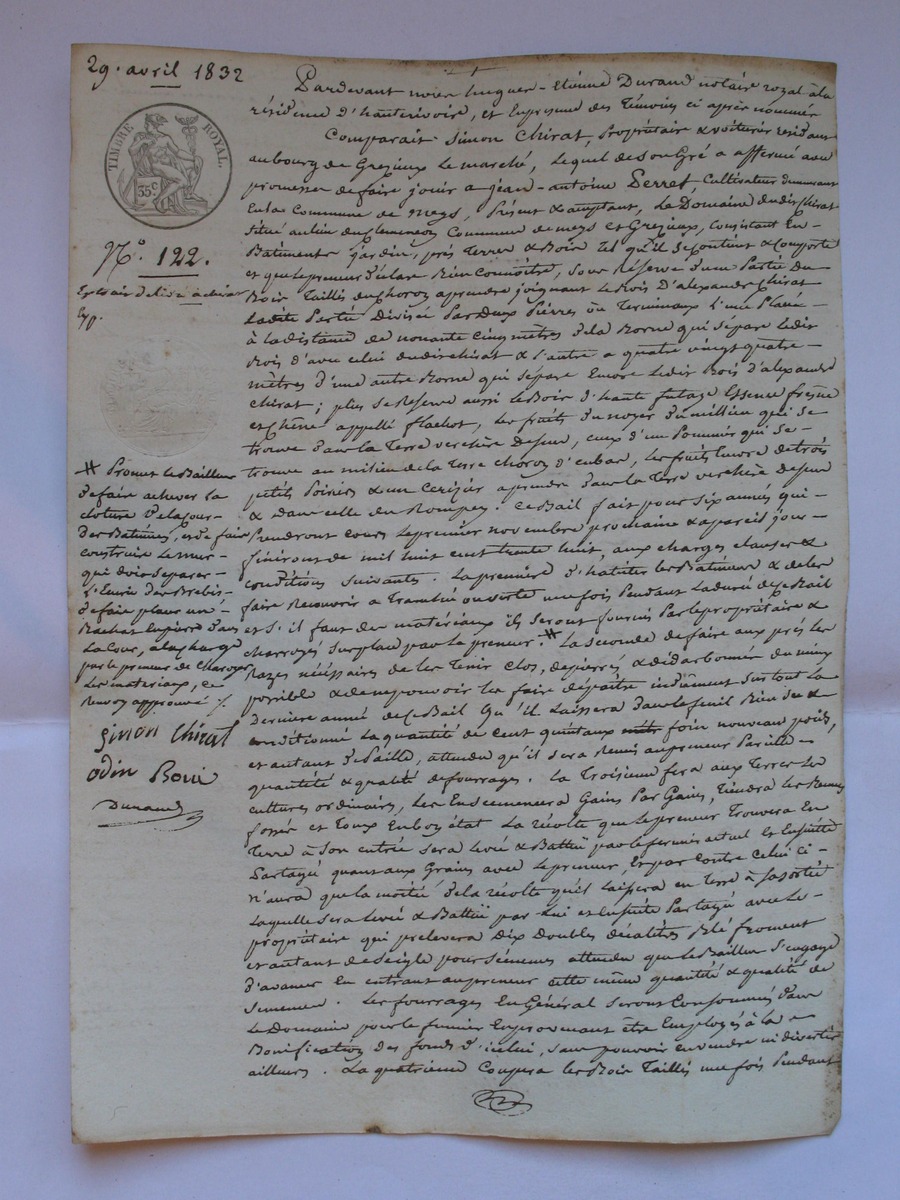 29. avril 1832
TIMBRE ROYAL.
35 c.
N.o 122.
Extrait délivré à chirat
Exp.
Pardevant nous hugues-Etienne Durand notaire royal à la
résidence d'hauterivoire, et en présence des Témoins ci après nommés
Comparait Simon Chirat, Propriétaire & voiturier résidant
au bourg de Grezieux Le marché, Lequel de Son Gré a affermé avec
promesse de faire jouir a jean-antoine Perret, Cultivateur demeurant
En la Commune de Meys, Présent & acceptant, Le Domaine dudit Chirat
Situé au lieu du Commune de meys et Grezieux, Consistant En
Batiments, jardin, prés Terres & Bois Tel qu'il Se contient & Comporte
et que le preneur déclare Bien Connoitre, Sous Réserve d'une Partie du
Bois Taillis du Choroz a prendre joignant Le Bois D'alexandre Chirat
Ladite Partie Divisée Par Deux Pierres ou Terminaux L'une Placée
à La distance de nonante Cinq mètres de la Borne qui Sépare Ledit
Bois d'avec celui dudit chirat & L'autre a quatre vingt quatre
mètres d'une autre Borne qui Sépare Encore Ledit Bois d'alexandre
Chirat; plus Se Réserve aussi Le Bois d'haute futaye Essence fresne
et Chêne appellé flachot, Les fruits du noyer du millieu qui Se
trouve dans La Terre verchère dessus, ceux d'un Pommier qui Se
trouve au milieu de la Terre choroz d'en bas, Les fruits Encore de trois
petits Poiriers & un Cerizier aprendre dans La Terre verchère dessus
& dans celle du Rompey. Ce Bail fait pour Six années qui
Prendront Cours Le premier novembre prochain & a pareil jour
finiront de mil huit cent trente huit, aux charges clauses &
conditions suivantes. La première d'habiter Les Batiments & de les
faire Recouvrir a Tranchée ouverte une fois Pendant La durée de Ce Bail
et S'il faut des matériaux ils Seront fournis Par le propriétaire &
charroyés Sur place par Le preneur. # La Seconde de faire aux prés Les
Razes nécessaires de les Tenir Clos, depierrés & dédarbonnés du mieux
possible & de ne pouvoir Les faire dépaître indûment Surtout La
dernière année de Ce Bail Qu'il Laissera dans Le fenil Bien Sec &
Conditionné La quantité de Cent quintaux foin nouveau poids,
et autant de Paille, attendu qu'il Sera Remis au preneur Pareille
quantité & qualité de fourrages. La Troisième fera aux Terres Les
cultures ordinaires, Les Ensemencera Gains Par Gains, Tiendra Les
fossés et Toux En bon état La récolte que Le preneur Trouvera En
Terre à Son entrée Sera Levée & Battue par Le fermier actuel Et Ensuite
Partagée quant aux Grains avec Le preneur, Et par Contre Celui ci
n'aura que La moitié de la récolte qu'il Laissera en Terre à Sa Sortie
Laquelle Sera Levée & Battue par Lui et Ensuite Partagée avec Le
propriétaire qui prelevera Dix Doubles décalitres Blé froment
et autant de Seigle pour Semences attendu que Le Bailleur S'engage
d'avancer En entrant au preneur cette même quantité & qualité de
Semences. Les fourrages En Général Seront Consommés dans
Le Domaine pour Le fumier En provenant être Employés à La
Bonification des fonds d'icelui, Sans pouvoir En vendre ni divertir
ailleurs. La quatrième Coupera Les Bois Taillis une fois Pendant
# Promet Le Bailleur
de faire achever La
cloture de La Cour
des Batiments, et de faire
construire Le mur
qui doit Séparer
L'Ecurie des Brebis
de faire placer un
Rachat En pierre dans
La Cour, a La charge
par Le preneur de Charroyer
Les matériaux, Ce
Renvoy approuvé /.
Simon Chirat
odin Bovie
Durand